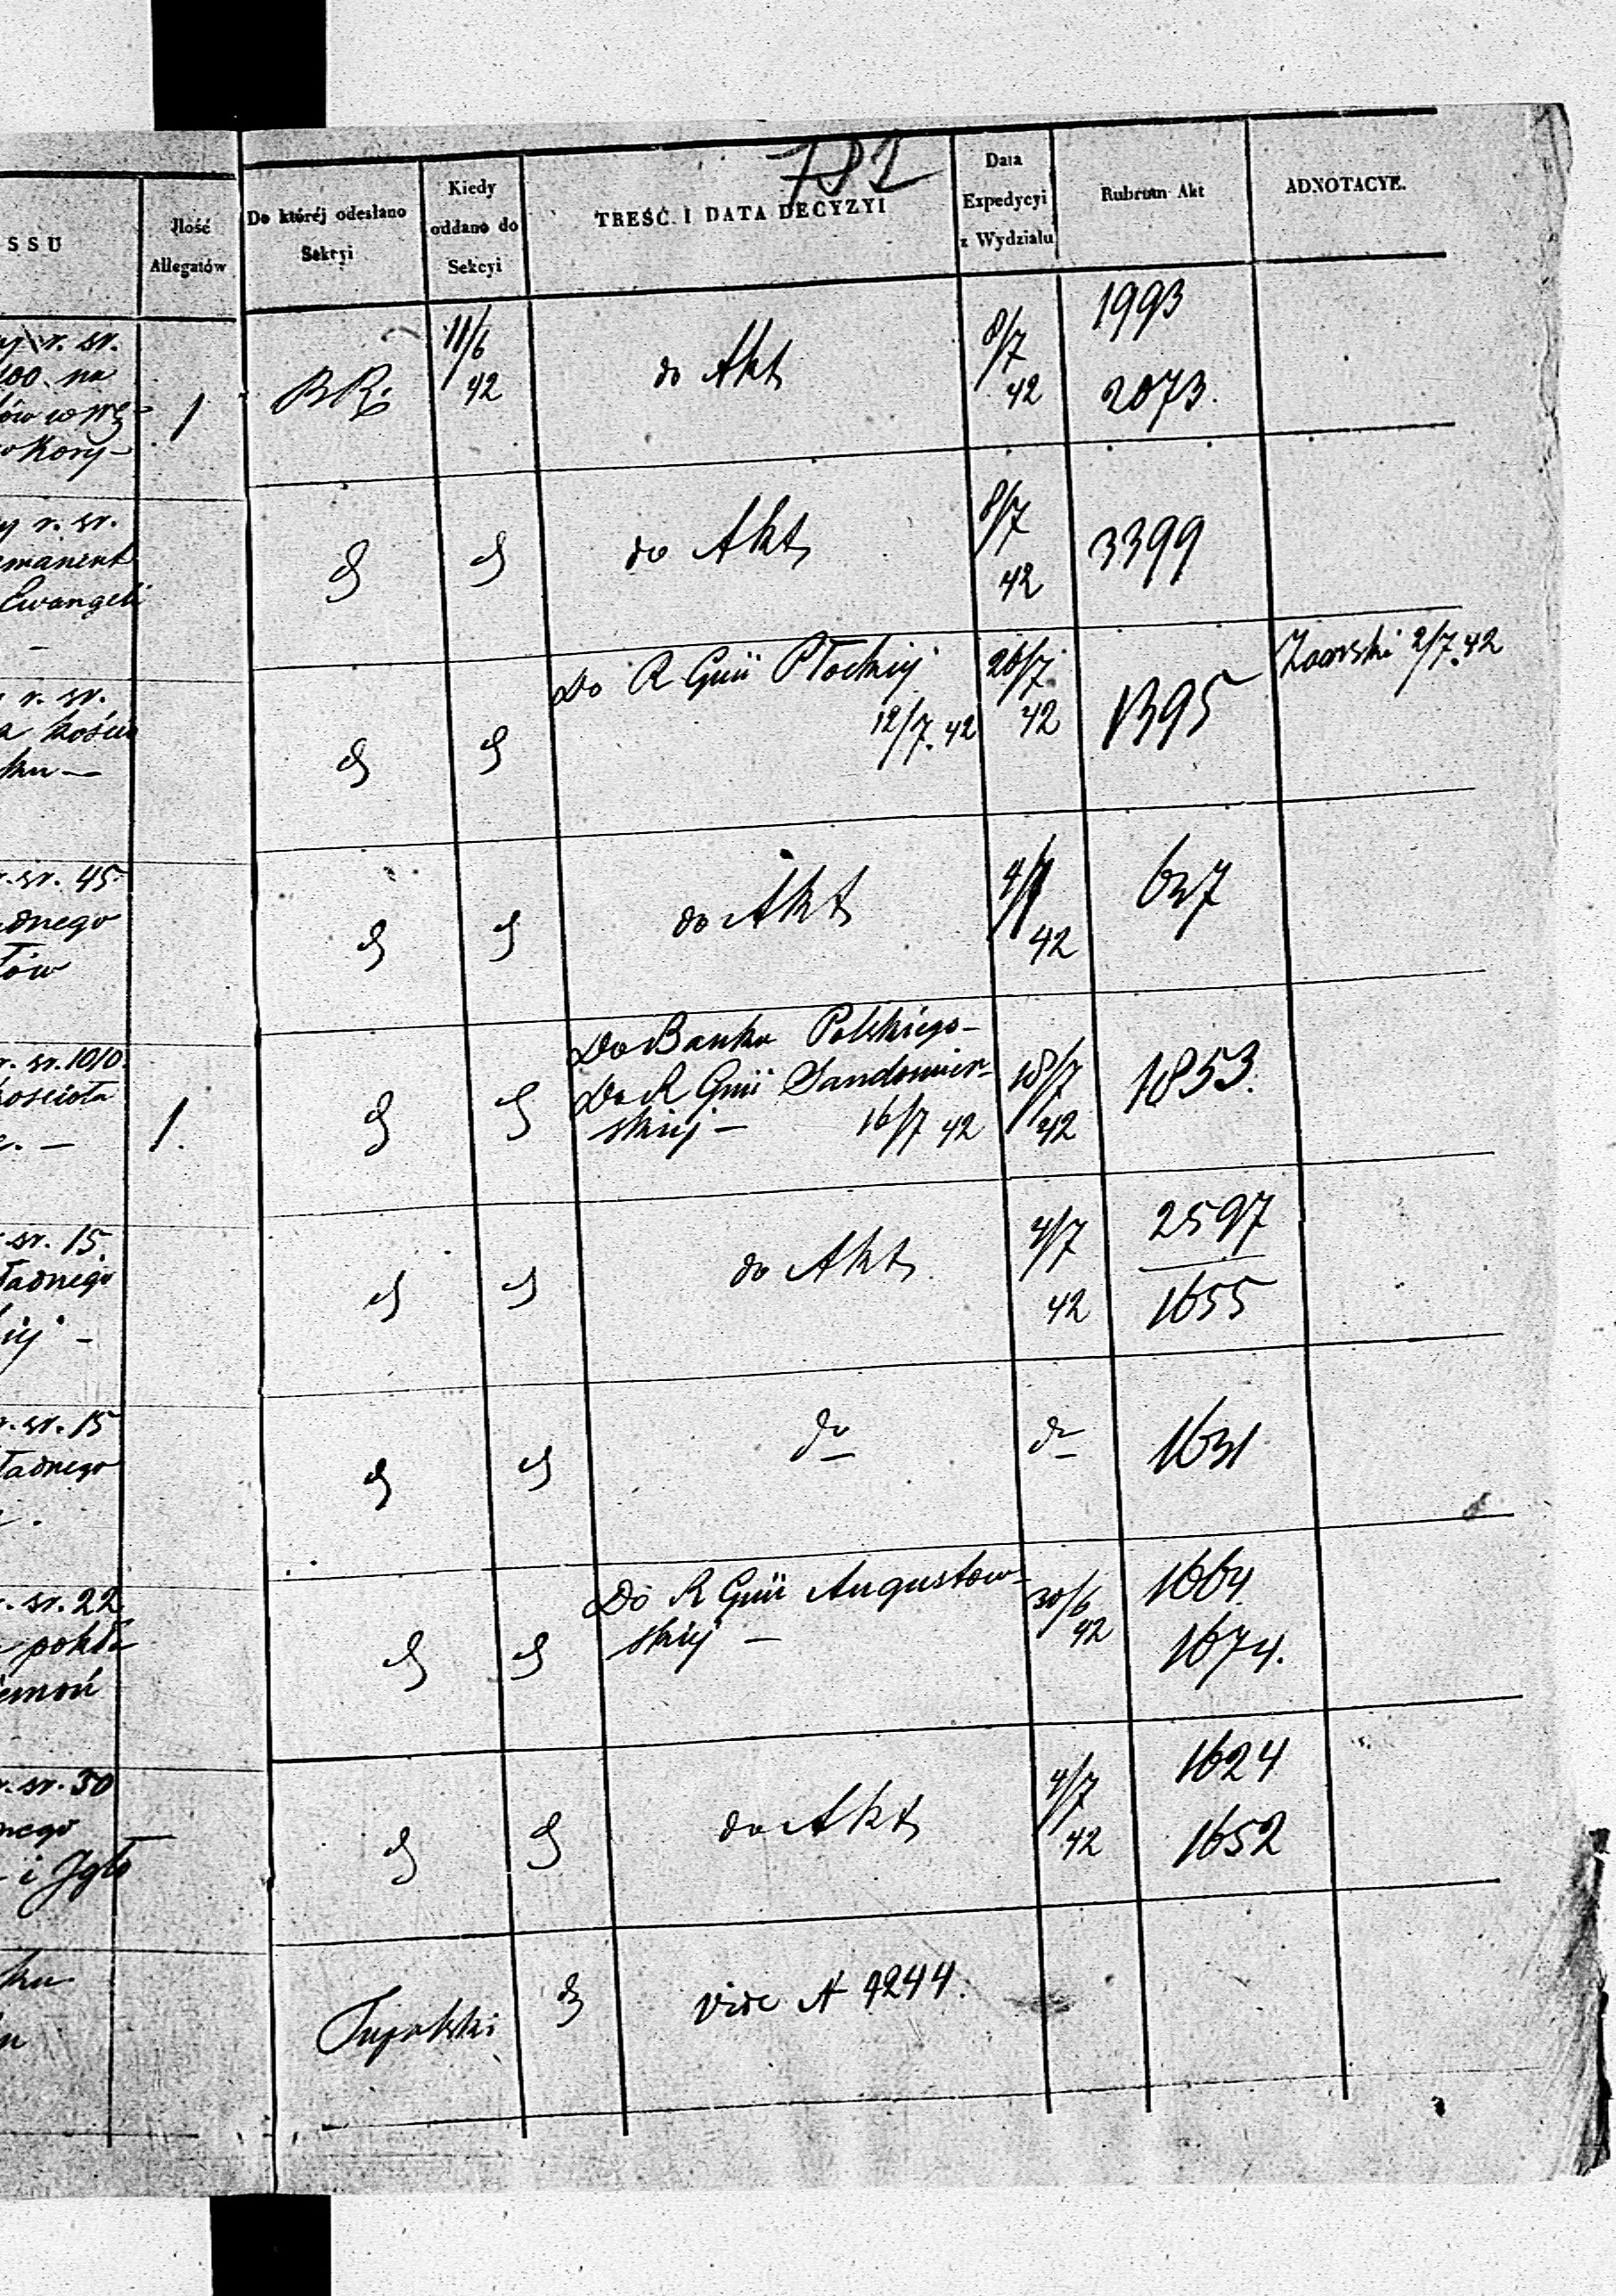 732
SSU
Jlość
Allegatów
Do któréj odesłano
Sekcyi
Kiedy
oddano do
Sekcyi
TREŚĆ I DATA DECYZYI
Data
Expedycyi
z Wydziału
Rubrum Akt
ADNOTACYE.
r. sr.
na
1
BR.
11/6
42
do Akt
8/7
42
1993
2073.
r. sr.
emanent
Ewangeli
do Akt
8/7
42
3399
r. sr.
kościo
Do R Gnii Płockiej
12/7. 42
26/7
42
1395
2/7.42
r. sr. 45
dnego
do Akt
4/7
42
637
r. sr. 1010.
kościoła
1.
Do Banku Polskiego
Do R Gnii Sandomier-
skiej –
16/7 42
18/7
42
1853.
sr. 15
ładnego
do Akt
4/7
42
2597
1655
r. sr. 15
ładnego
do
do
1631
r. sr. 22
pokła
Do R Gnii Augustow-
skiej –
30/6
42
1664.
1674.
r. sr. 30
nego
i Jgło
do Akt
4/7
42
1624
1652
ku
vide N 4244.